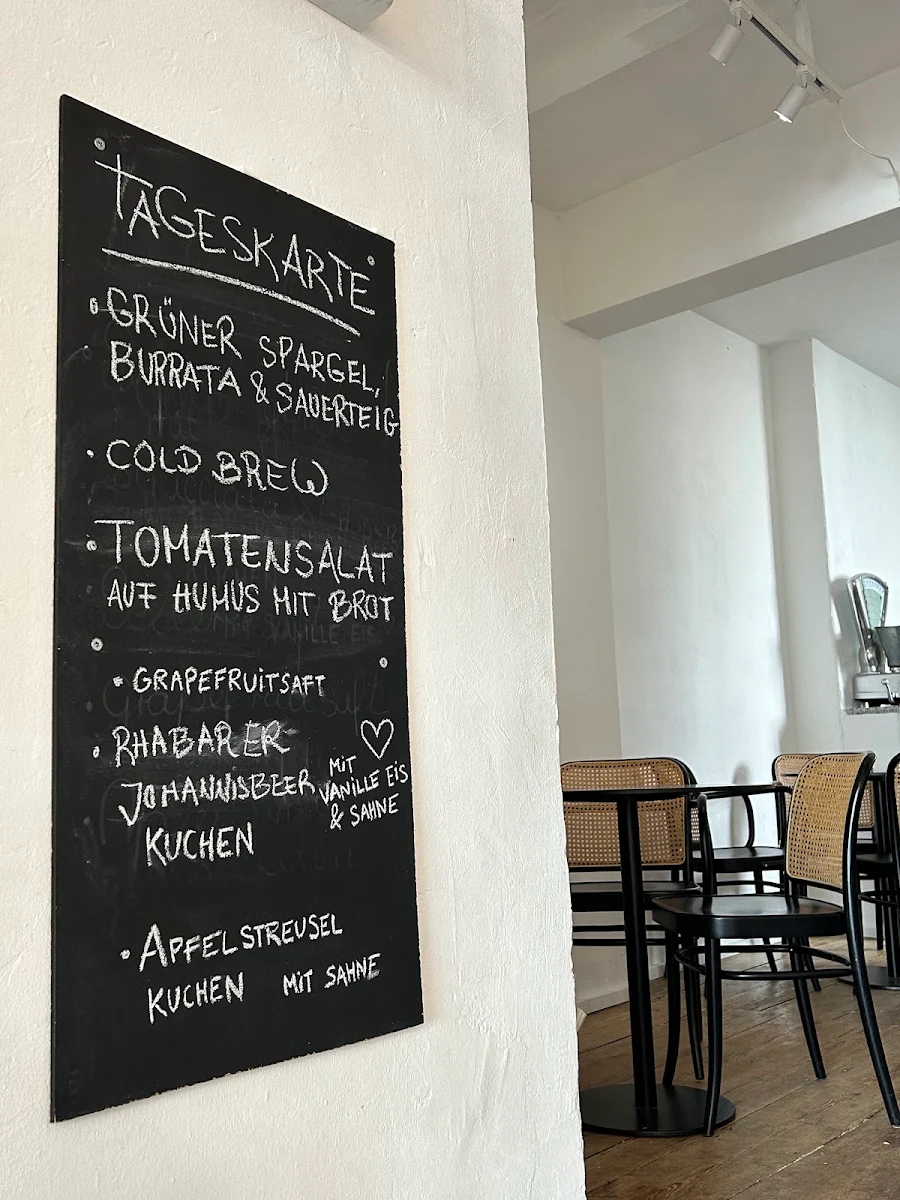 TAGESKARTE
• GRÜNER SPARGEL,
BURRATA & SAUERTEIG
• COLD BREW
• TOMATENSALAT
AUF HUMUS MIT BROT
• GRAPEFRUITSAFT
• RHABARER
JOHANNISBEER
KUCHEN
♡
MIT
VANILLE EIS
& SAHNE
• APFELSTREUSEL
KUCHEN MIT SAHNE